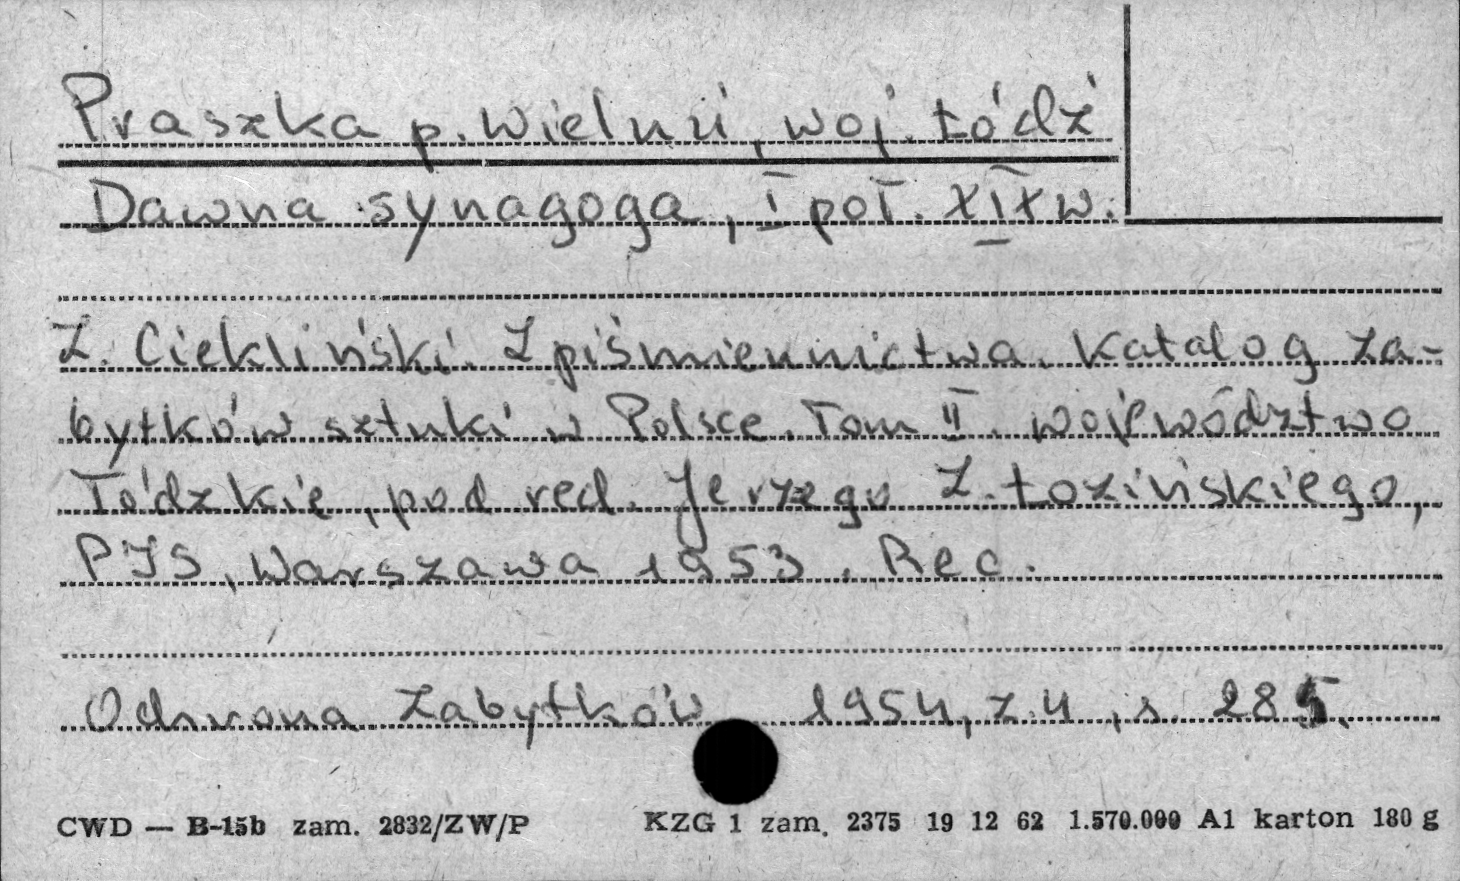 Praszka p. Wieluń, woj. Łódź
Dawna synagoga, I poł. XIX w.
Z. Ciekliński. Z piśmiennictwa. Katalog za-
bytków sztuki w Polsce. Tom II. Województwo
łódzkie, pod red. Jerzego Z. Łozińskiego,
PIS, Warszawa 1953. Rec.
Ochrona Zabytków 1954, z. 4, s. 285.
CWD — B-15b zam. 2832/ZW/P KZG 1 zam. 2375 19 12 62 1.570.000 A1 karton 180 g